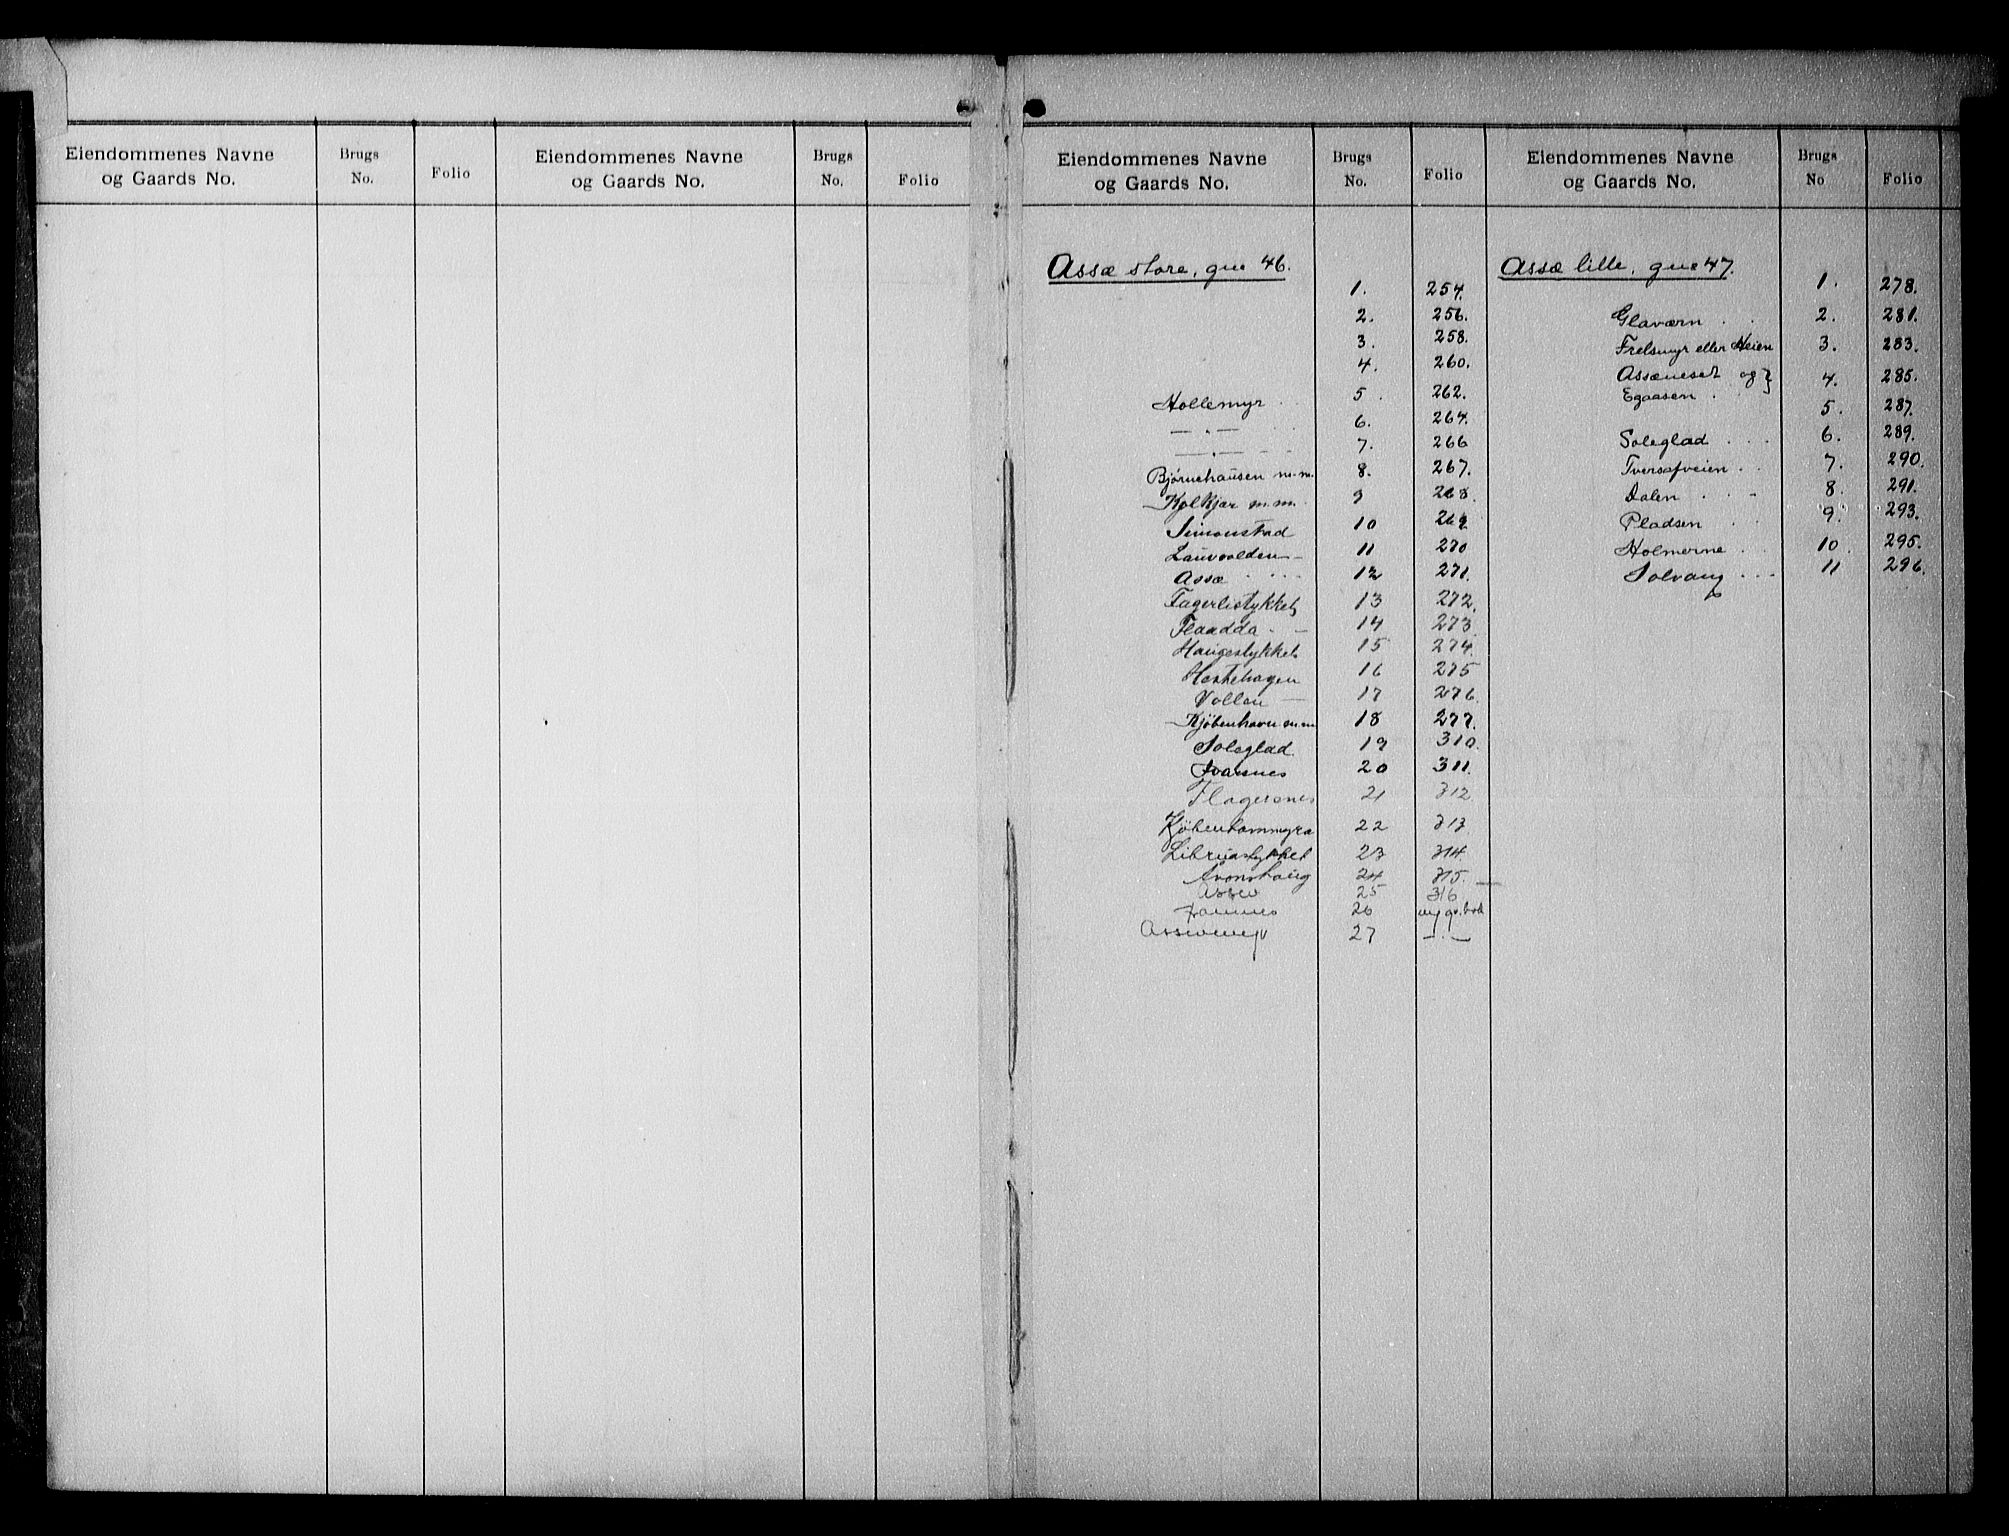 Eiendommenes Navne og Gaards No. Brugs No. Folio Eiendommenes Navne og Gaards No. Brugs No. Folio
Eiendommenes Navne og Gaards No. Brugs No. Folio
Assæ store, gno 46.
1. 254.
2. 256.
3. 258.
4. 260.
Hollemyr 5. 262.
—"— 6. 264.
—"— 7. 266
Bjørnehausen m.m. 8. 267.
Kolkjær m.m. 9 268.
Simonstad 10 269.
Lauvoolden 11 270
Assæ 12 271.
Fagerlistykket 13 272.
Flaadda 14 273
Haugestykket 15 274.
Hestehagen 16 275
Vollen 17 276.
Kjøbenhavn m.m 18 277.
Soleglad 19 310.
Svarsnes 20 311.
Flagesnes 21 312
Kjøbenhavnmyra 22 313.
23 314.
24 315.
25 316
26
27 —.—
Eiendommenes Navne og Gaards No. Brugs No Folio
Assæ lille, gno 47.
1. 278.
Glaværn 2. 281.
Frelsmyr eller Heien 3. 283.
Assæneset og }
Egaasen 4. 285.
5. 287.
Soleglad 6. 289.
Tversafveien 7. 290.
Dalen 8. 291.
Pladsen 9. 293.
Holmerne 10. 295.
Solvang 11 296.